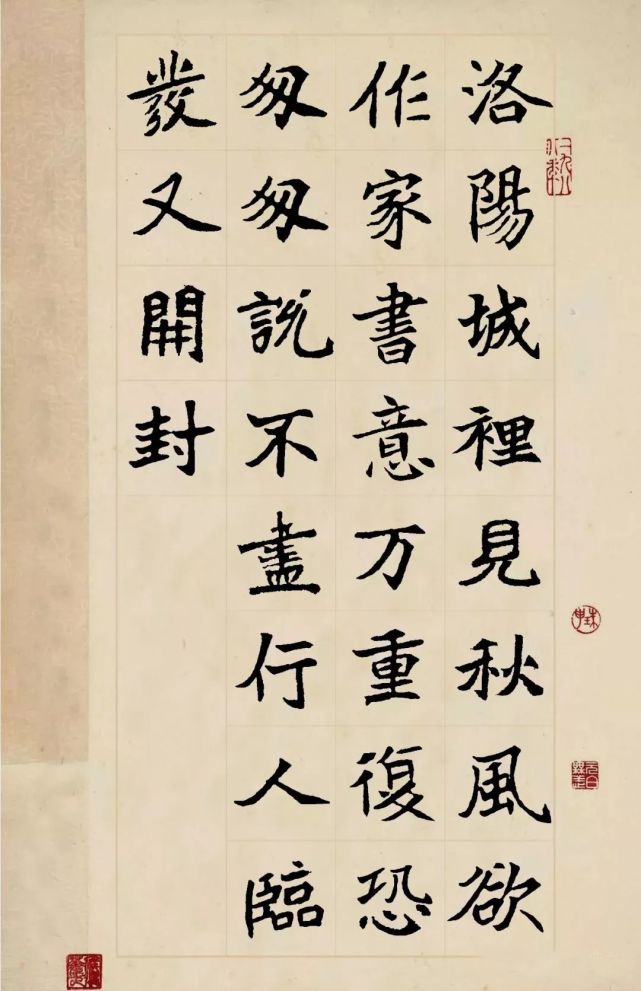 洛陽城裡見秋風欲
作家書意万重復恐
匆匆說不盡行人臨
發又開封